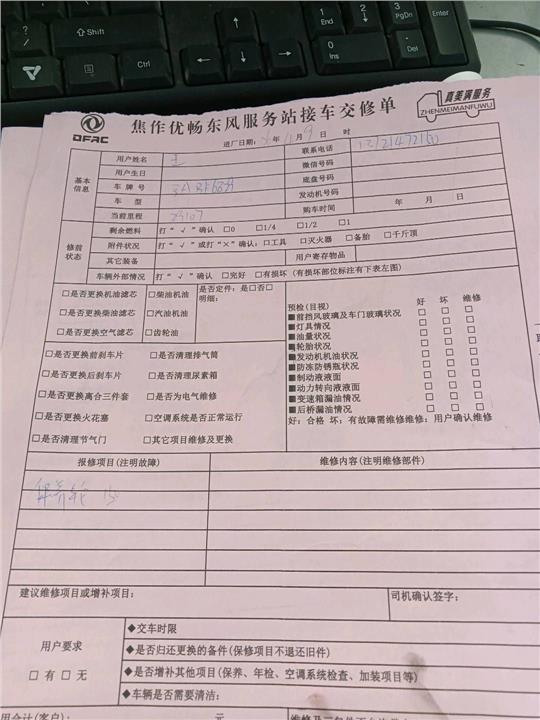 Shift
Ctrl
1
End
2
3
PgDn
Enter
0
Ins
Del
DFAC
焦作优畅东风服务站接车交修单
真美满服务
ZHENMEIMANFUWU
进厂日期: 年 11月 9日 时
基本信息
用户姓名 王 联系电话
用户生日 微信号码
车牌号 底盘号码
车型 发动机号码
当前里程 购车时间 年 月 日
修前状态
剩余燃料 打“√”确认 □0 □1/4 □1/2 □1
附件状况 打“√”或打“×”确认:□工具 □灭火器 □备胎 □千斤顶
其它装备 用户寄存物品
车辆外部情况 打“√”确认 □完好 □有损坏(有损坏部位标注有下表左图)
□是否更换机油滤芯 □柴油机油 是否定件:是□否□
明细:
□是否更换柴油滤芯 □汽油机油
□是否更换空气滤芯 □齿轮油
□是否更换前刹车片 □是否清理排气筒
□是否更换后刹车片 □是否清理尿素箱
□是否更换离合三件套 □是否为电气维修
□是否更换火花塞 □空调系统是否正常运行
□是否清理节气门 □其它项目维修及更换
预检(目视) 好 坏 维修
■前挡风玻璃及车门玻璃状况 □ □ □
■灯具情况 □ □ □
■油量状况 □ □ □
■轮胎状况 □ □ □
■发动机机油状况 □ □ □
■防冻防锈瓶状况 □ □ □
■制动液液面 □ □ □
■动力转向液液面 □ □ □
■变速箱漏油情况 □ □ □
■后桥漏油情况 □ □ □
好:合格 坏:有故障需维修维修:用户确认维修
报修项目(注明故障) 维修内容(注明维修部件)
保养轮
建议维修项目或增补项目: 司机确认签字:
用户要求
□有□无
◆交车时限
◆是否归还更换的备件(保修项目不退还旧件)
◆是否增补其他项目(保养、年检、空调系统检查、加装项目等)
◆车辆是否需要清洁:
用合计(客户): 元